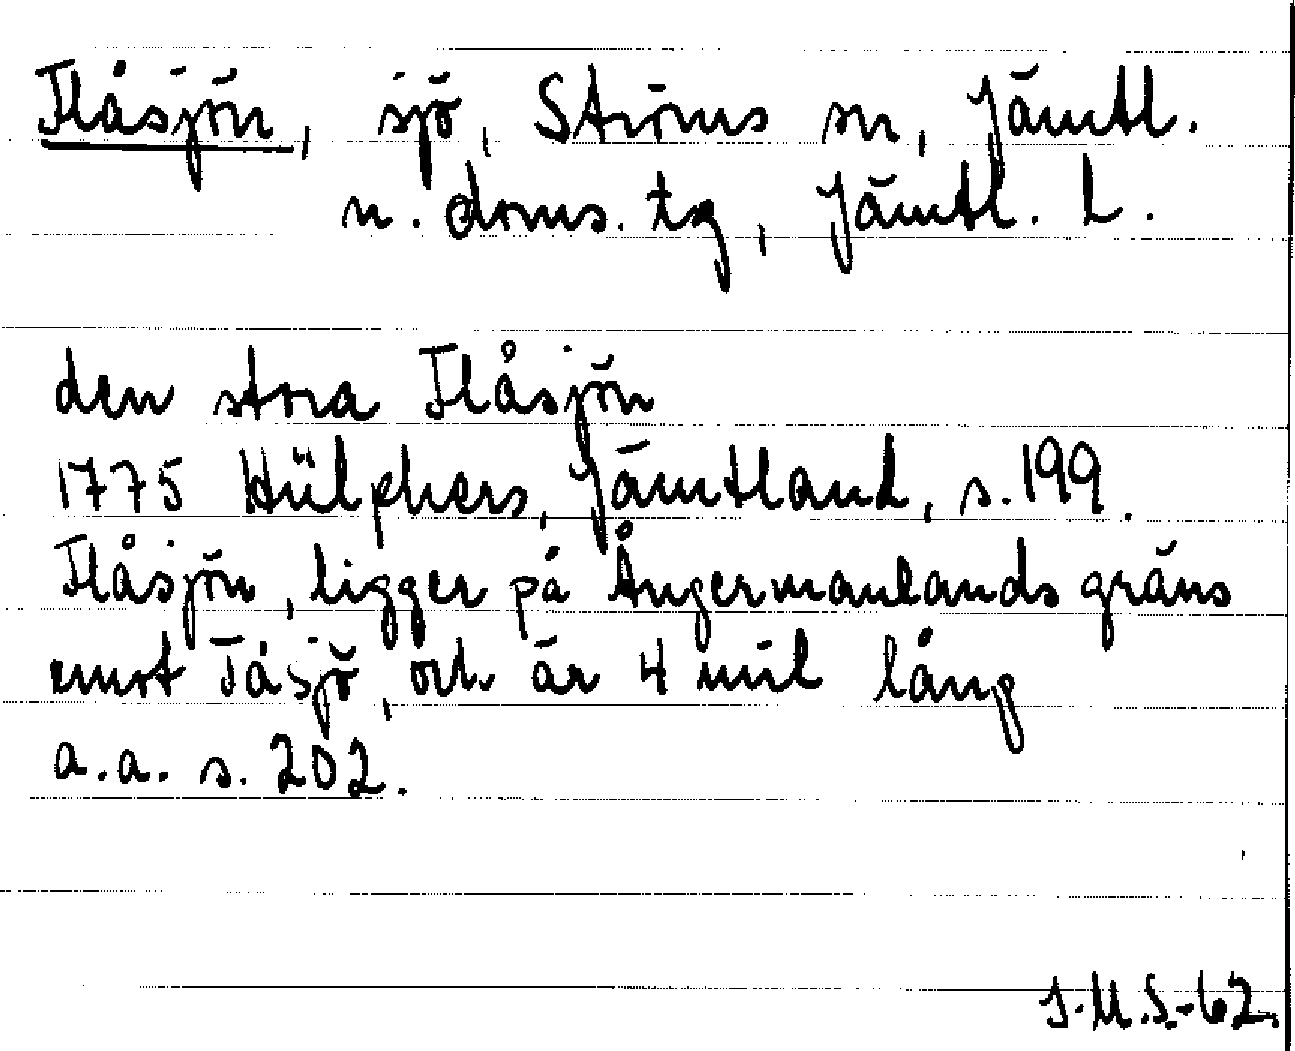 Flåsjön, sjö, Ströms sn, Jämtl.
n. doms. tg, Jämtl. L.
den stora Flåsjön
1775 Hülphers, Jämtland, s. 199.
Flåsjön, ligger på Ångermanlands gräns
emot Tåsjö, och är 4 mil lång
a.a. s. 202.
I.M.S.-62.